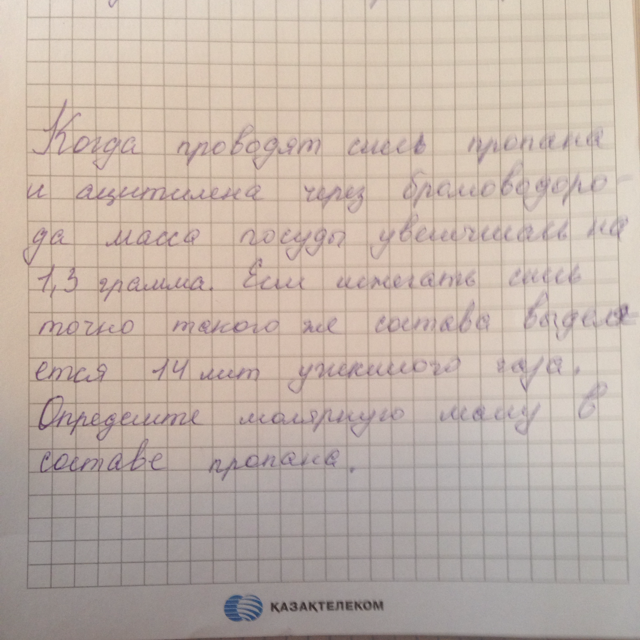 Когда проводят смесь пропана
и ацитилена через бромоводоро-
да масса посуды увеличилась на
1,3 грамма. Если исжегать смесь
точно такого же состава выделя
ется 14 лит углекислого газа.
Определите молярную массу в
составе пропана.
ҚАЗАҚТЕЛЕКОМ